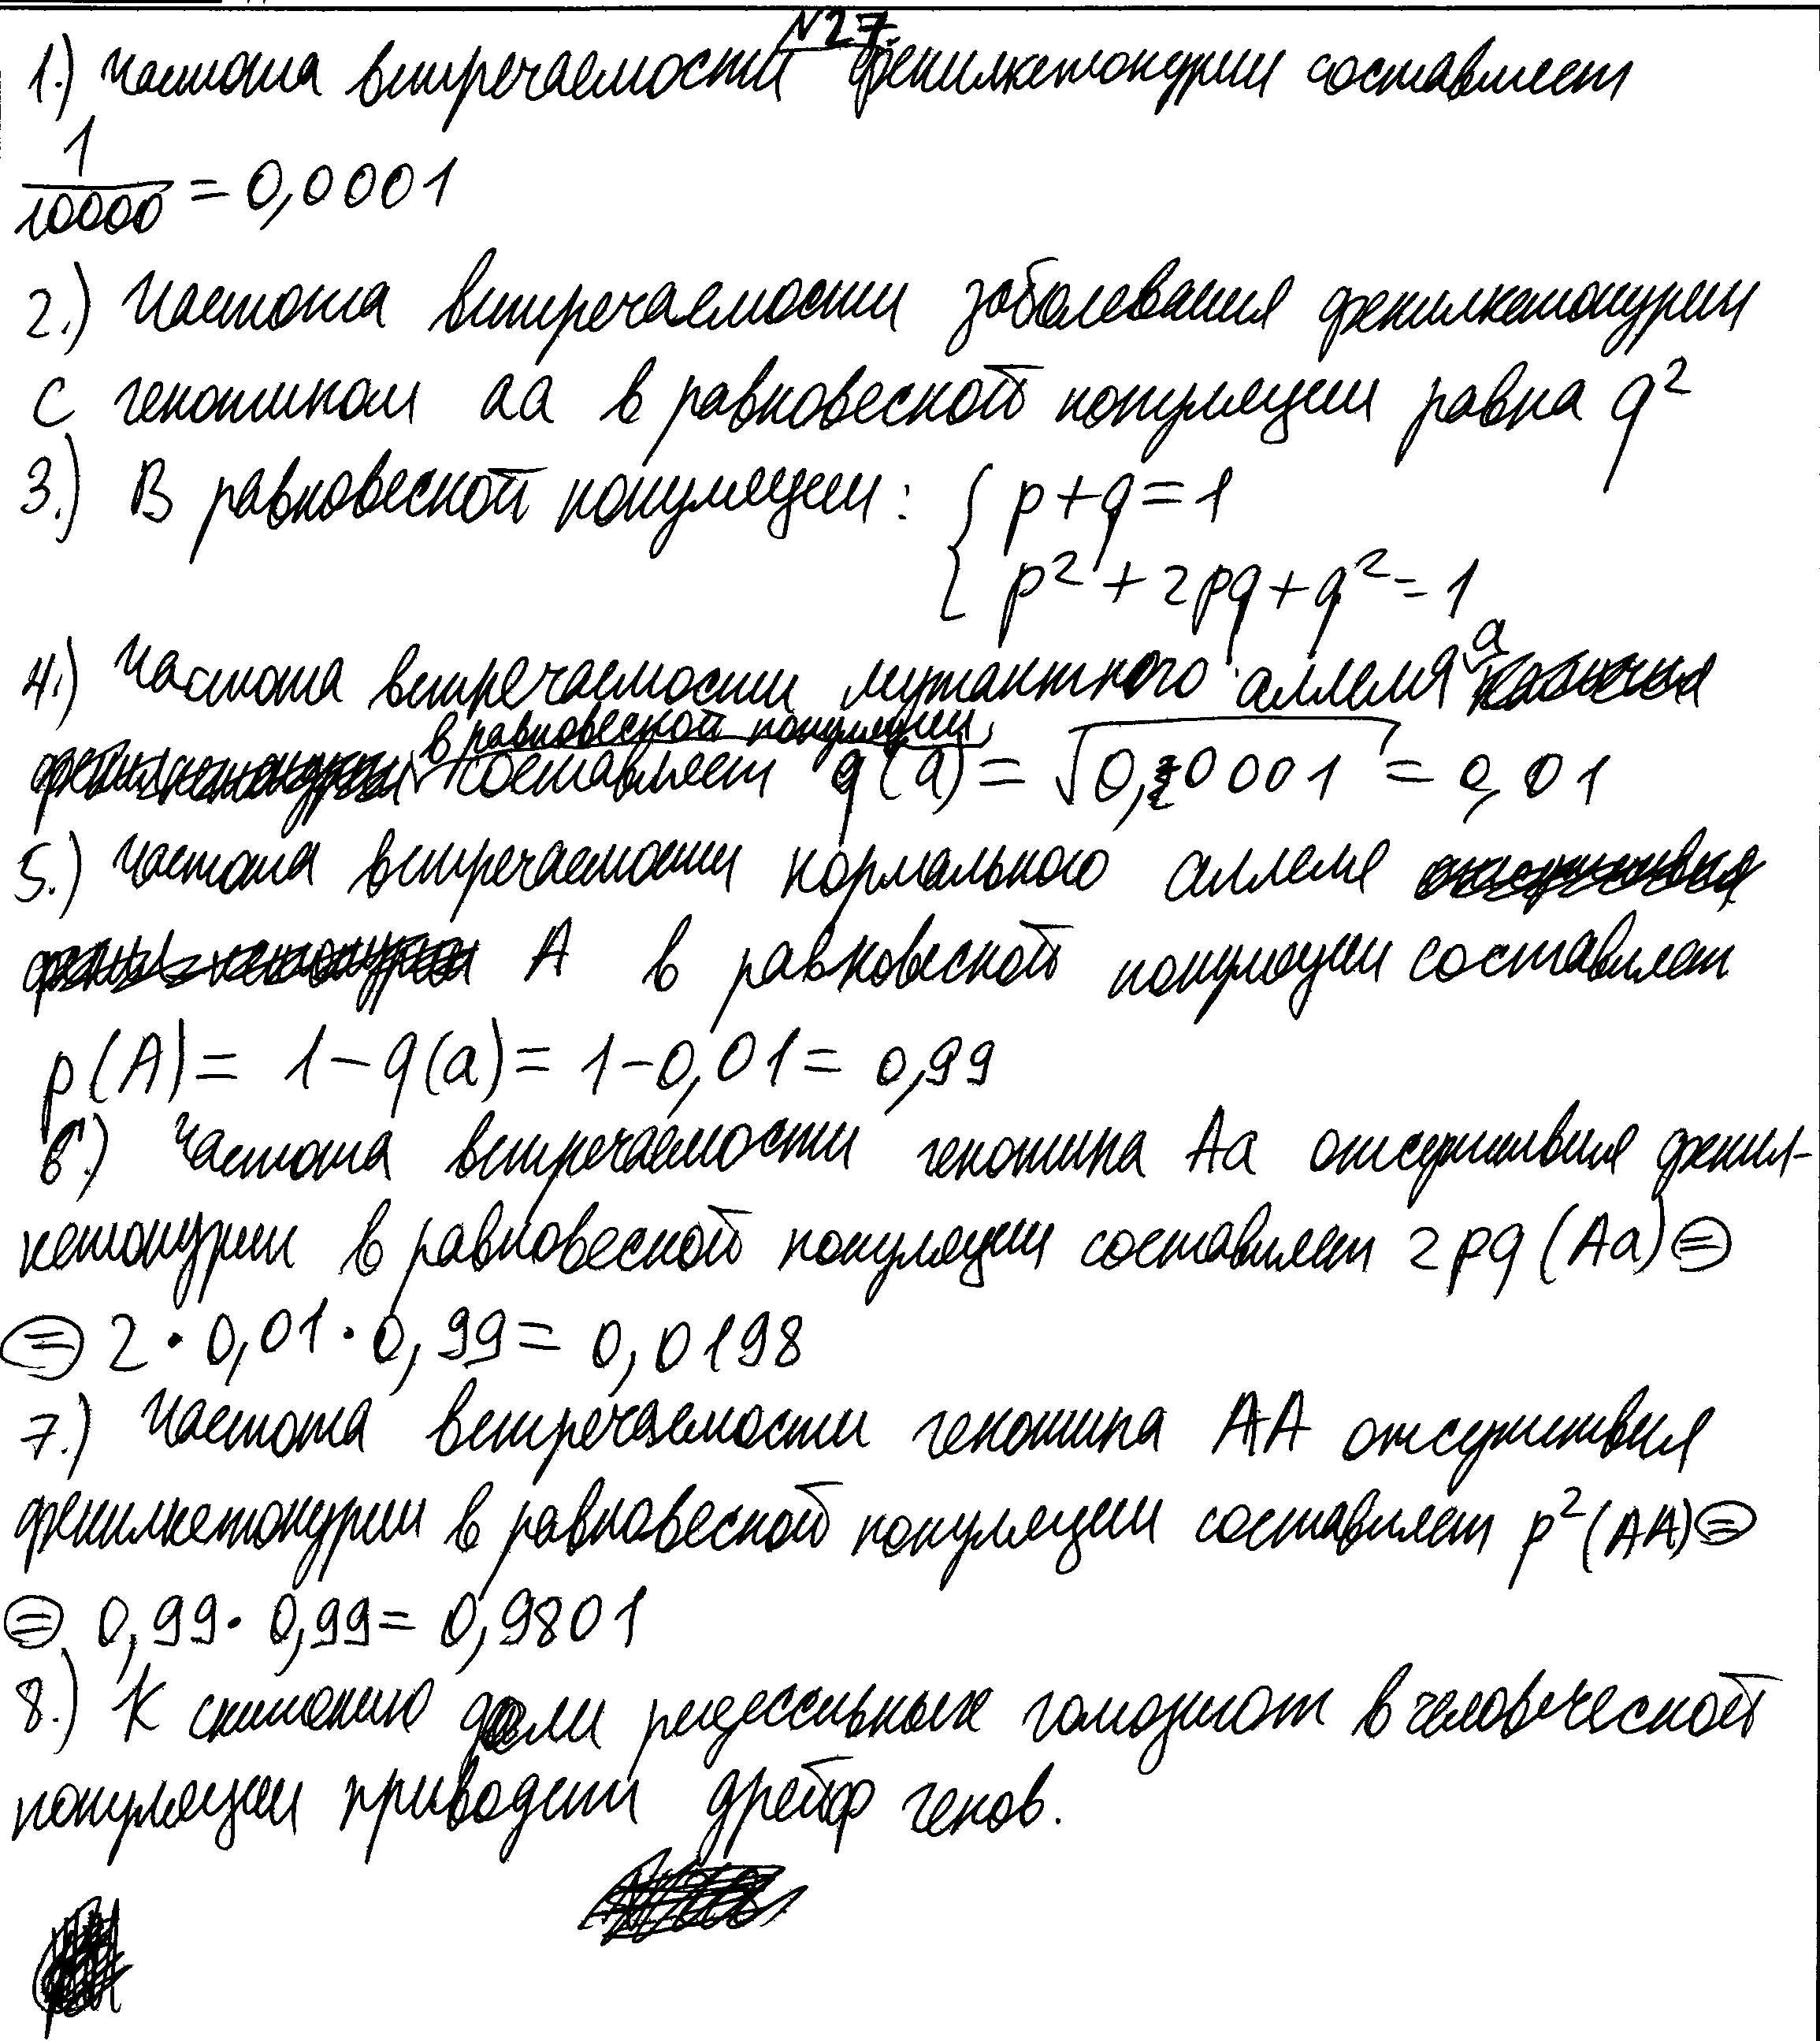 N27.
1.) Частота встречаемости фенилкетонурии составляет
1/10000 = 0,0001
2.) Частота встречаемости заболевания фенилкетонурии
с генотипом аа в равновесной популяции равна q²
3.) В равновесной популяции: { p+q=1
p² + 2pq + q² = 1
4.) Частота встречаемости мутантного аллеля а
в равновесной популяции,
составляет q(a) = √0,0001 = 0,01
5.) Частота встречаемости нормального аллеля
А в равновесной популяции составляет
p(A) = 1 - q(a) = 1 - 0,01 = 0,99
6.) Частота встречаемости генотипа Аа отсутствия фенил-
кетонурии в равновесной популяции составляет 2pq (Aa) =
= 2 · 0,01 · 0,99 = 0,0198
7.) Частота встречаемости генотипа АА отсутствия
фенилкетонурии в равновесной популяции составляет p² (AA) =
= 0,99 · 0,99 = 0,9801
8.) К снижению доли рецессивных гомозигот в человеческой
популяции приводит дрейф генов.